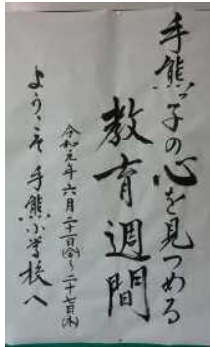 手熊っ子の心を見つめる
教育週間
令和元年六月二十一日(金)~二十七日(木)
ようこそ手熊小学校へ